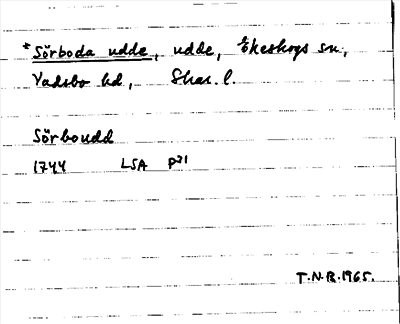 *Sörboda udde, udde, Ekeskogs sn,
Vadsbo hd, Skar. l.
Sörboudd
1744 LSA P21
T.N.B. 1965.